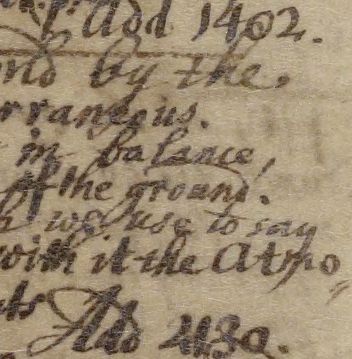 Add 1402.
by the
rraneous.
in balance,
of the ground.
h we use to say
with it the Atmo
Add 2130.